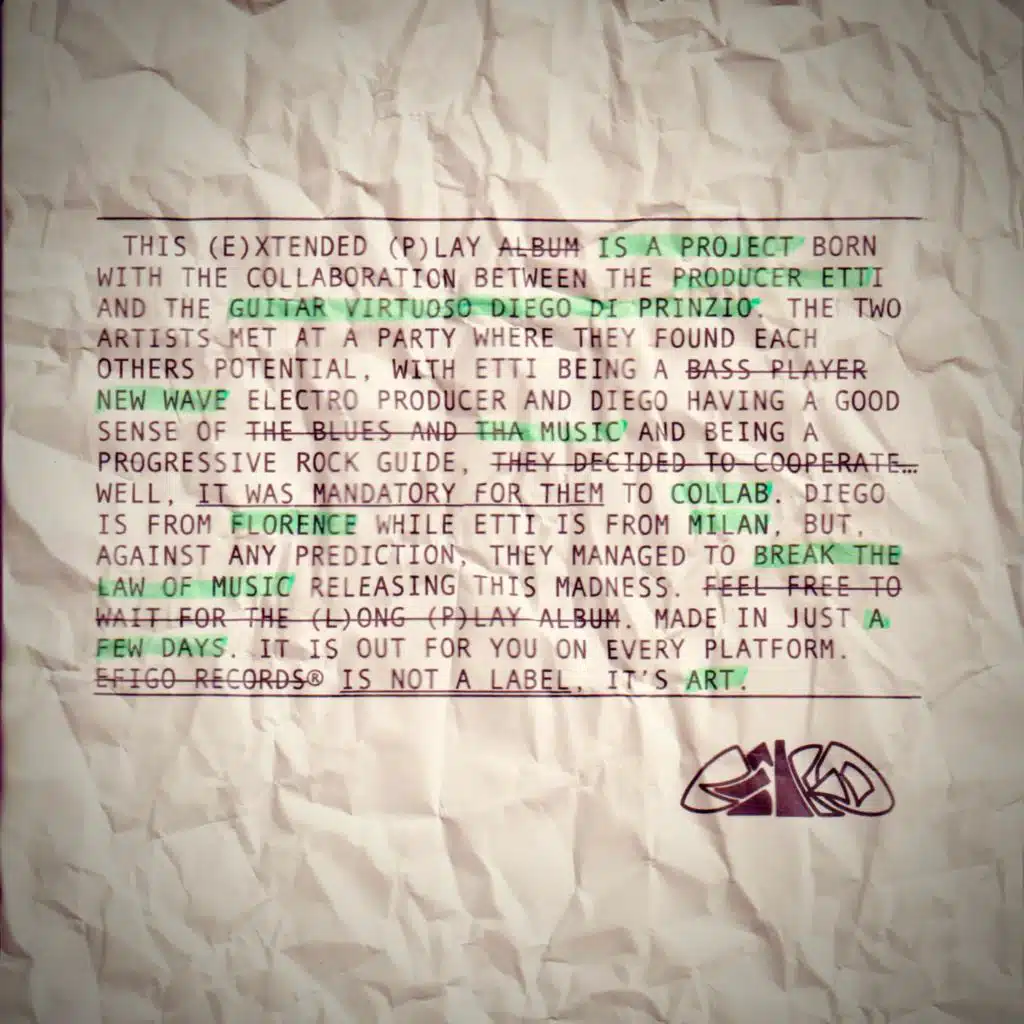 THIS (E)XTENDED (P)LAY ALBUM IS A PROJECT BORN
WITH THE COLLABORATION BETWEEN THE PRODUCER ETTI
AND THE GUITAR VIRTUOSO DIEGO DI PRINZIO. THE TWO
ARTISTS MET AT A PARTY WHERE THEY FOUND EACH
OTHERS POTENTIAL, WITH ETTI BEING A BASS PLAYER
NEW WAVE ELECTRO PRODUCER AND DIEGO HAVING A GOOD
SENSE OF THE BLUES AND THA MUSIC AND BEING A
PROGRESSIVE ROCK GUIDE, THEY DECIDED TO COOPERATE…
WELL, IT WAS MANDATORY FOR THEM TO COLLAB. DIEGO
IS FROM FLORENCE WHILE ETTI IS FROM MILAN, BUT,
AGAINST ANY PREDICTION, THEY MANAGED TO BREAK THE
LAW OF MUSIC RELEASING THIS MADNESS. FEEL FREE TO
WAIT FOR THE (L)ONG (P)LAY ALBUM. MADE IN JUST A
FEW DAYS. IT IS OUT FOR YOU ON EVERY PLATFORM.
EFIGO RECORDS® IS NOT A LABEL, IT'S ART.